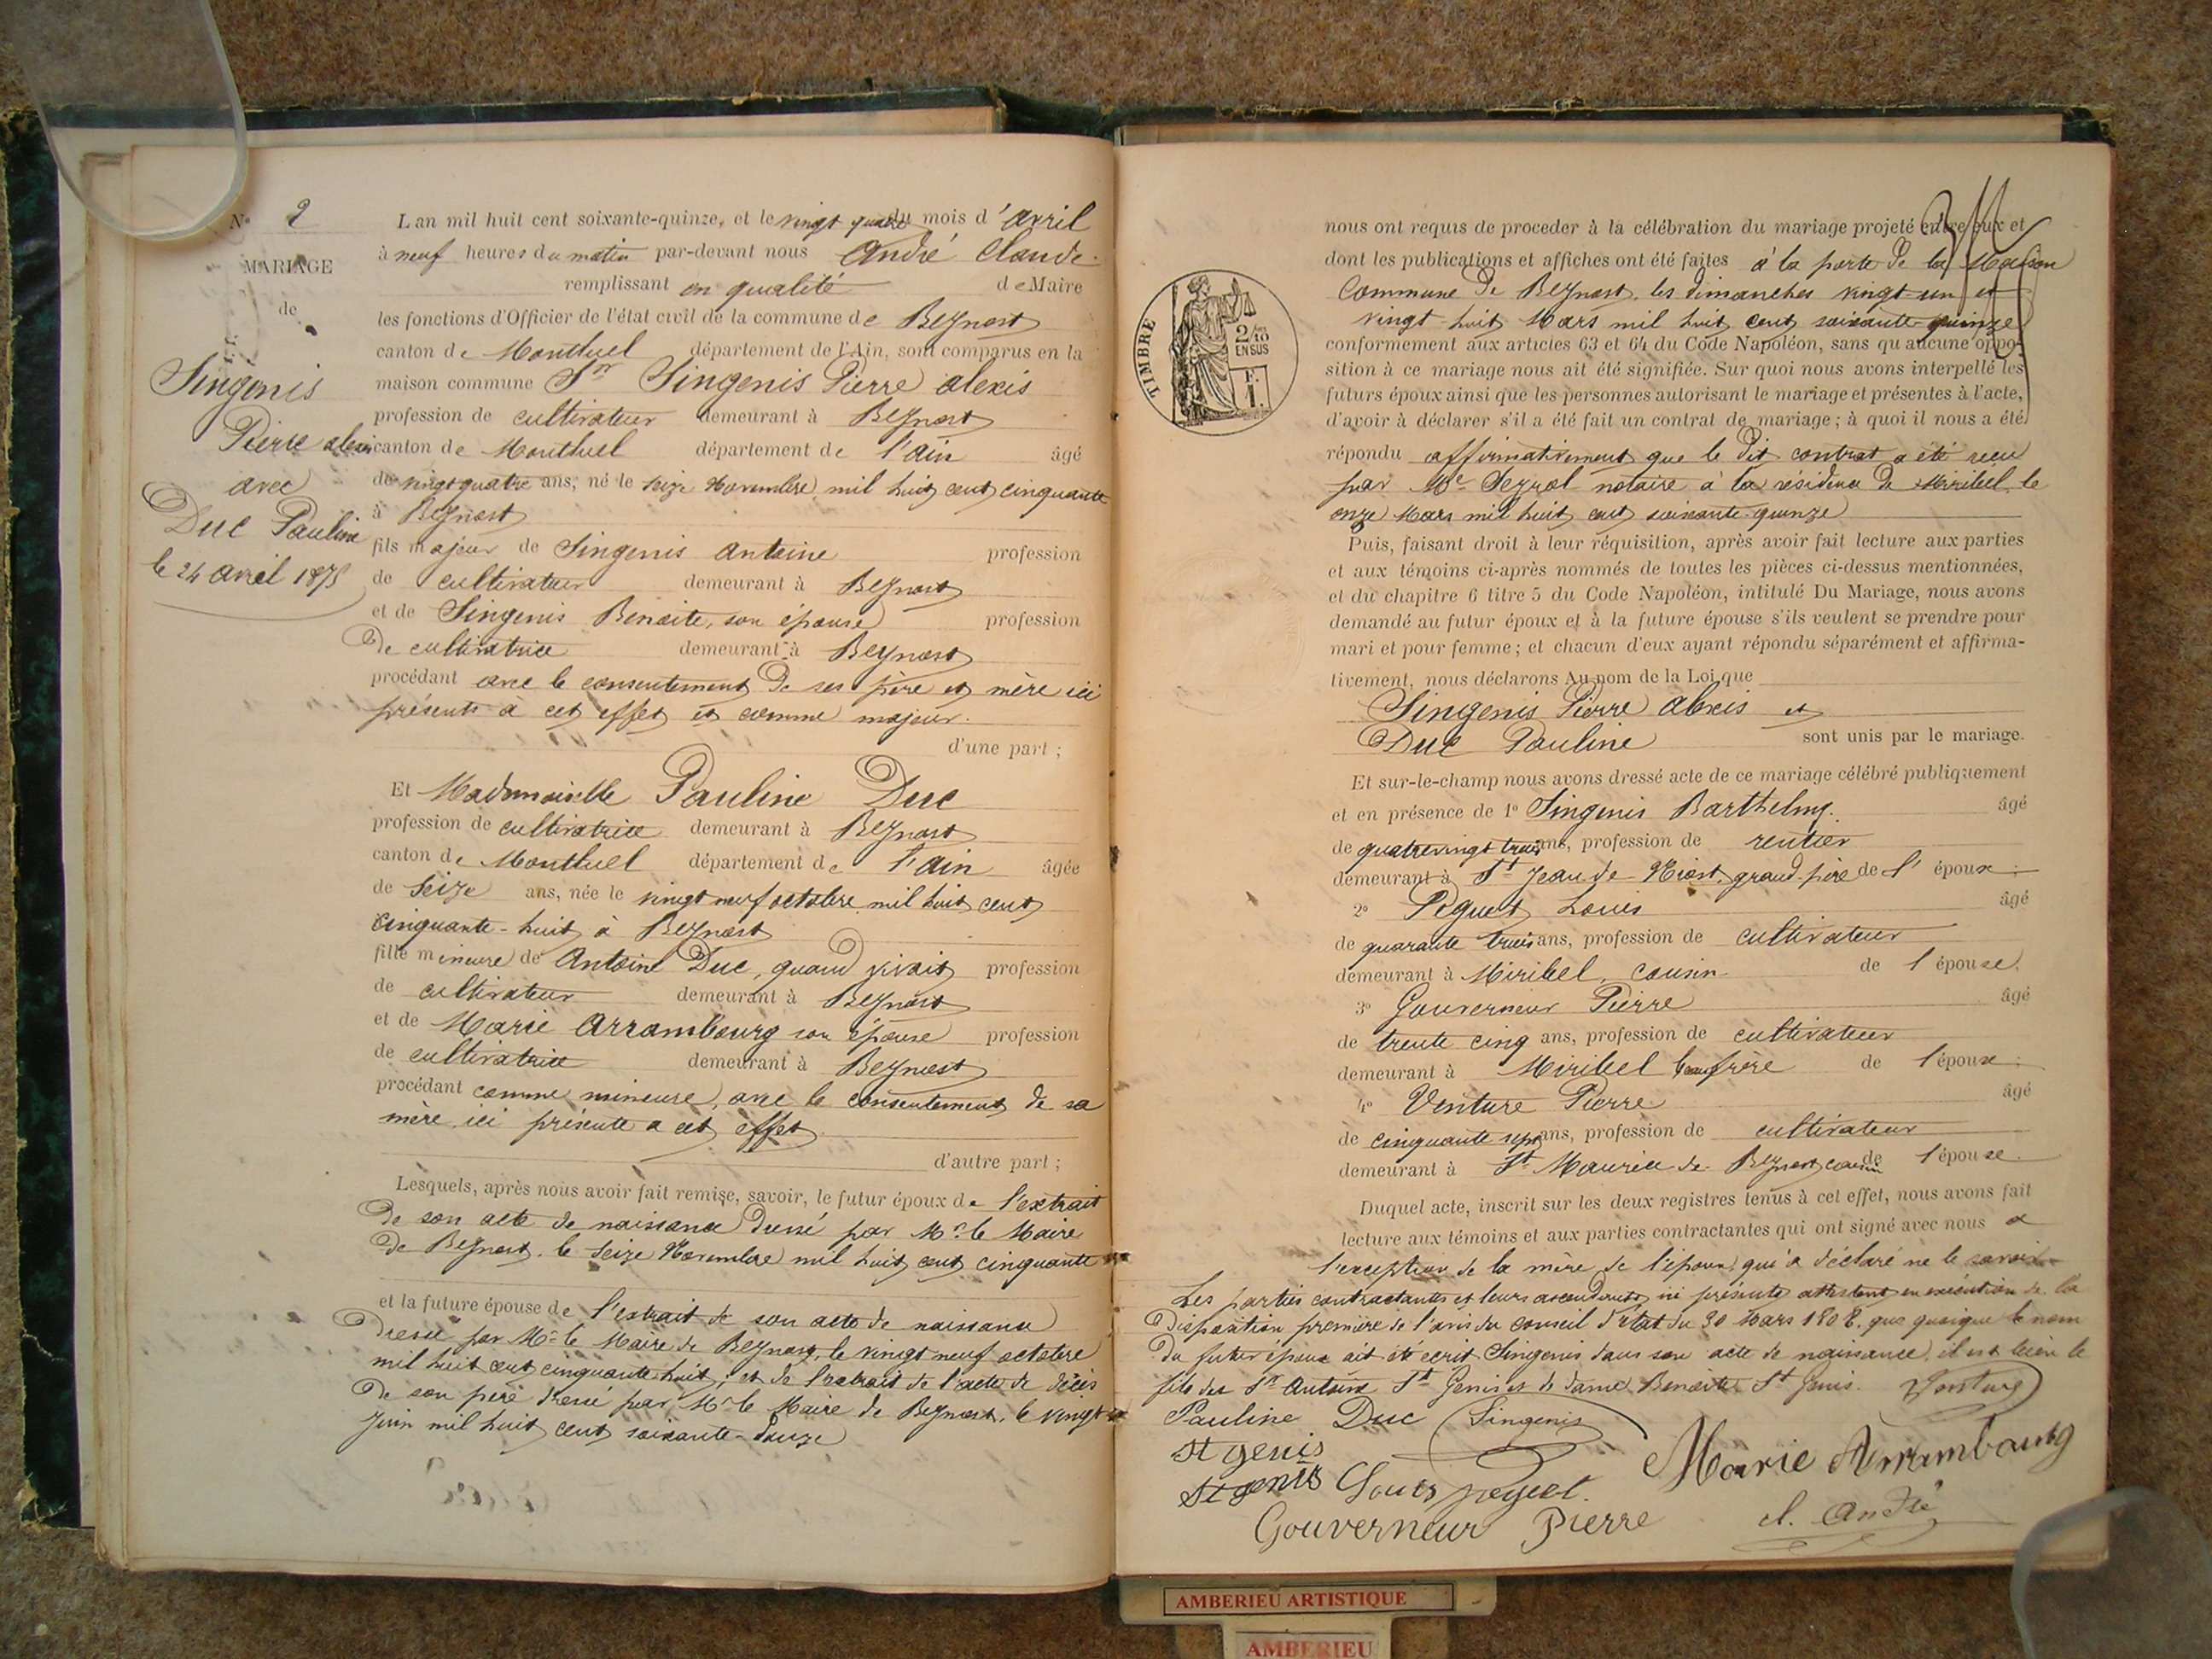 N° 2
MARIAGE
de
Singenis
Pierre alexis
avec
Duc Pauline
le 24 avril 1875
L an mil huit cent soixante-quinze, et le vingt quatre du mois d'avril
à neuf heures du matin par-devant nous André Claude
remplissant en qualité de Maire
les fonctions d'Officier de l'état civil de la commune de Beynost
canton de Montluel département de l'Ain, sont comparus en la
maison commune Sr Singenis Pierre alexis
profession de cultivateur demeurant à Beynost
canton de Montluel département de l'ain âgé
de vingt quatre ans, né le seize Novembre mil huit cent cinquante
à Beynost
fils majeur de Singenis antoine profession
de cultivateur demeurant à Beynost
et de Singenis Benoite, son épouse profession
de cultivatrice demeurant à Beynost
procédant avec le consentement de ses père et mère ici
présents à cet effet et comme majeur.
d'une part ;
Et Mademoiselle Pauline Duc
profession de cultivatrice demeurant à Beynost
canton de Montluel département de l'ain âgée
de seize ans, née le vingt neuf octobre mil huit cent
cinquante-huit à Beynost
fille mineure de Antoine Duc, quand vivait profession
de cultivateur demeurant à Beynost
et de Marie Arrambourg son épouse profession
de cultivatrice demeurant à Beynost
procédant comme mineure, avec le consentement de sa
mère ici présente a cet effet
d'autre part ;
Lesquels, après nous avoir fait remise, savoir, le futur époux de l'extrait
de son acte de naissance dressé par Mr le Maire
de Beynost, le seize Novembre mil huit cent cinquante
et la future épouse de l'extrait de son acte de naissance
dressé par Mr le Maire de Beynost, le vingt neuf octobre
mil huit cent cinquante-huit ; et de l'extrait de l'acte de décès
de son père dressé par Mr le Maire de Beynost, le vingt
juin mil huit cent soixante-douze
nous ont requis de proceder à la célébration du mariage projeté entre eux et
dont les publications et affiches ont été faites à la porte de la Maison
Commune de Beynost, les dimanches vingt-un et
vingt-huit Mars mil huit cent soixante-quinze
conformement aux articles 63 et 64 du Code Napoléon, sans qu aucune oppo-
sition à ce mariage nous ait été signifiée. Sur quoi nous avons interpellé les
futurs époux ainsi que les personnes autorisant le mariage et présentes à l'acte,
d'avoir à déclarer s'il a été fait un contrat de mariage ; à quoi il nous a été
répondu affirmativement que le dit contrat a été reçu
par Me notaire à la résidence de Miribel, le
onze Mars mil huit cent soixante-quinze
Puis, faisant droit à leur réquisition, après avoir fait lecture aux parties
et aux témoins ci-après nommés de toutes les pièces ci-dessus mentionnées,
et du chapitre 6 titre 5 du Code Napoléon, intitulé Du Mariage, nous avons
demandé au futur époux et à la future épouse s'ils veulent se prendre pour
mari et pour femme ; et chacun d'eux ayant répondu séparément et affirma-
tivement, nous déclarons Au nom de la Loi que
Singenis Pierre Alexis et
Duc Pauline sont unis par le mariage.
Et sur-le-champ nous avons dressé acte de ce mariage célébré publiquement
et en présence de 1° Singenis Barthelmy. âgé
de quatrevingt trois ans, profession de rentier
demeurant à St Jean de Niost, grand-père de l'époux
2° Peguet Louis âgé
de quarante trois ans, profession de cultivateur
demeurant à Miribel, cousin de l'épouse.
3° Gouverneur Pierre âgé
de trente cinq ans, profession de cultivateur
demeurant à Miribel beaufrère de l'époux.
4° Venture Pierre âgé
de cinquante sept ans, profession de cultivateur
demeurant à St Maurice de Beynost cousin de l'épouse.
Duquel acte, inscrit sur les deux registres tenus à cet effet, nous avons fait
lecture aux témoins et aux parties contractantes qui ont signé avec nous a
l'exception de la mère de l'époux qui a déclaré ne le savoir
Les parties contractantes et leurs ascendants ici présents attestent en exécution de la
disposition première de l'avis du conseil d'état du 30 Mars 1808, que quoique le nom
du futur époux ait été écrit Singenis dans son acte de naissance, il est bien le
fils des Sr Antoine St Genis et de dame Benoite St Genis. Venture
Pauline Duc Singenis
st genis
St genis Louis peguet. Marie Arrambourg
Gouverneur Pierre cl. André
TIMBRE
2/10
EN SUS
F.
1.
AMBERIEU ARTISTIQUE
AMBERIEU